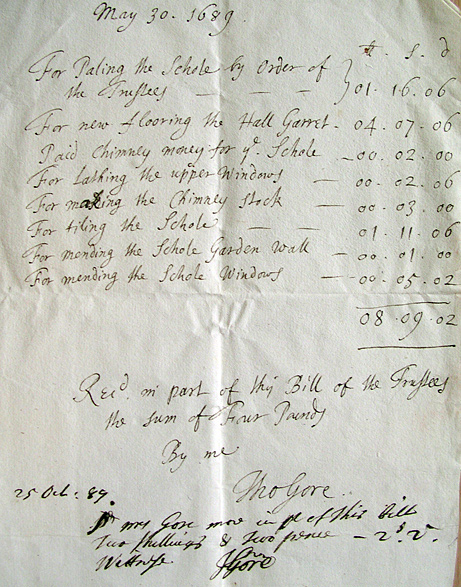 May 30. 1689.
£. s. d
For Paling the Schole by order of
the Trustees — — — } 01. 16. 06
For new flooring the Hall Garret - 04. 07. 06
Paid Chimney money for yᵉ Schole — 00. 02. 00
For Lathing the upper Windows — 00. 02. 06
For making the Chimney Stock — 00. 03. 00
For tiling the Schole — — 01. 11. 06
For mending the Schole Garden Wall — 00. 01. 00
For mending the Schole Windows — 00. 05. 02
08. 09. 02
Recd. in part of this Bill of the Trustees
the sum of Four Pounds
By me
Tho Gore.
25 Oct: 89.
mrs Gore more in pt of this Bill
Two shillings & two pence — 2s. 2d.
Wittnesse
Gore